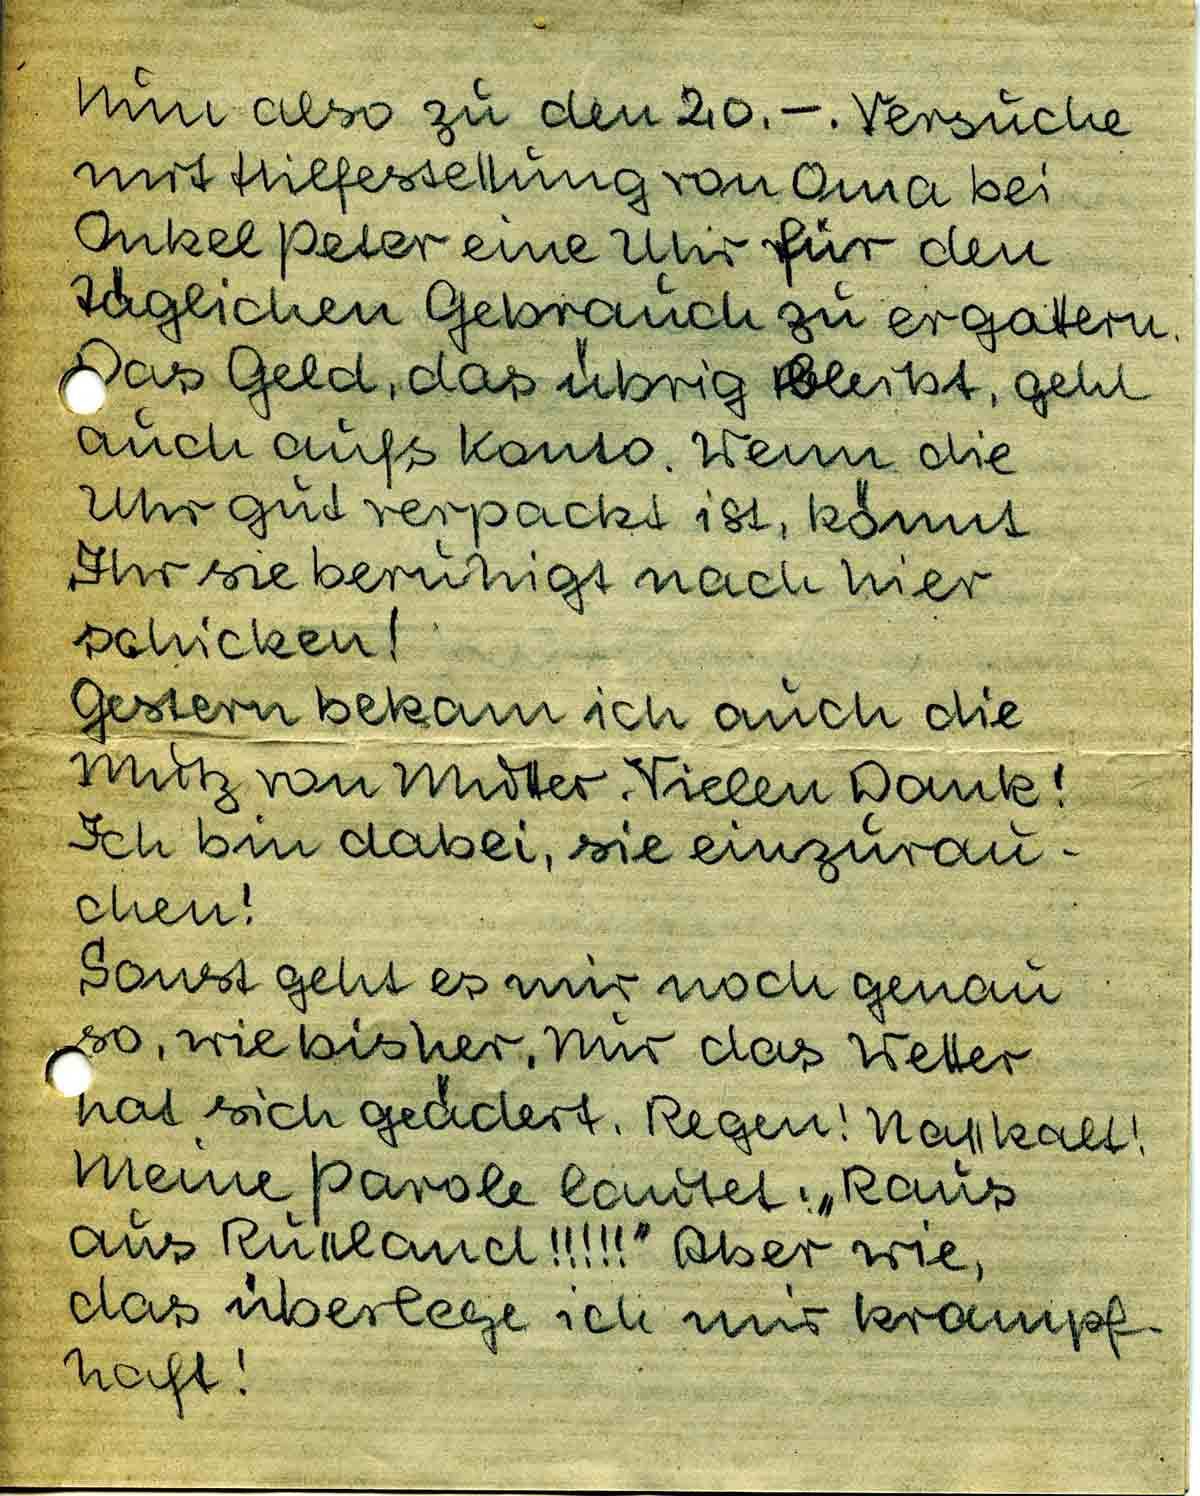 Nun also zu den 20.–. Versuche
mit Hilfestellung von Oma bei
Onkel Peter eine Uhr für den
täglichen Gebrauch zu ergattern.
Das Geld, das übrig bleibt, geht
auch aufs Konto. Wenn die
Uhr gut verpackt ist, könnt
Ihr sie beruhigt nach hier
schicken!
Gestern bekam ich auch die
Mutz von Mutter. Vielen Dank!
Ich bin dabei, sie einzurau-
chen!
Sonst geht es mir noch genau
so, wie bisher. Nur das Wetter
hat sich geädert. Regen! Naßkalt!
Meine Parole lautet: „Raus
aus Rußland!!!!!" Aber wie,
das überlege ich mir krampf-
haft!